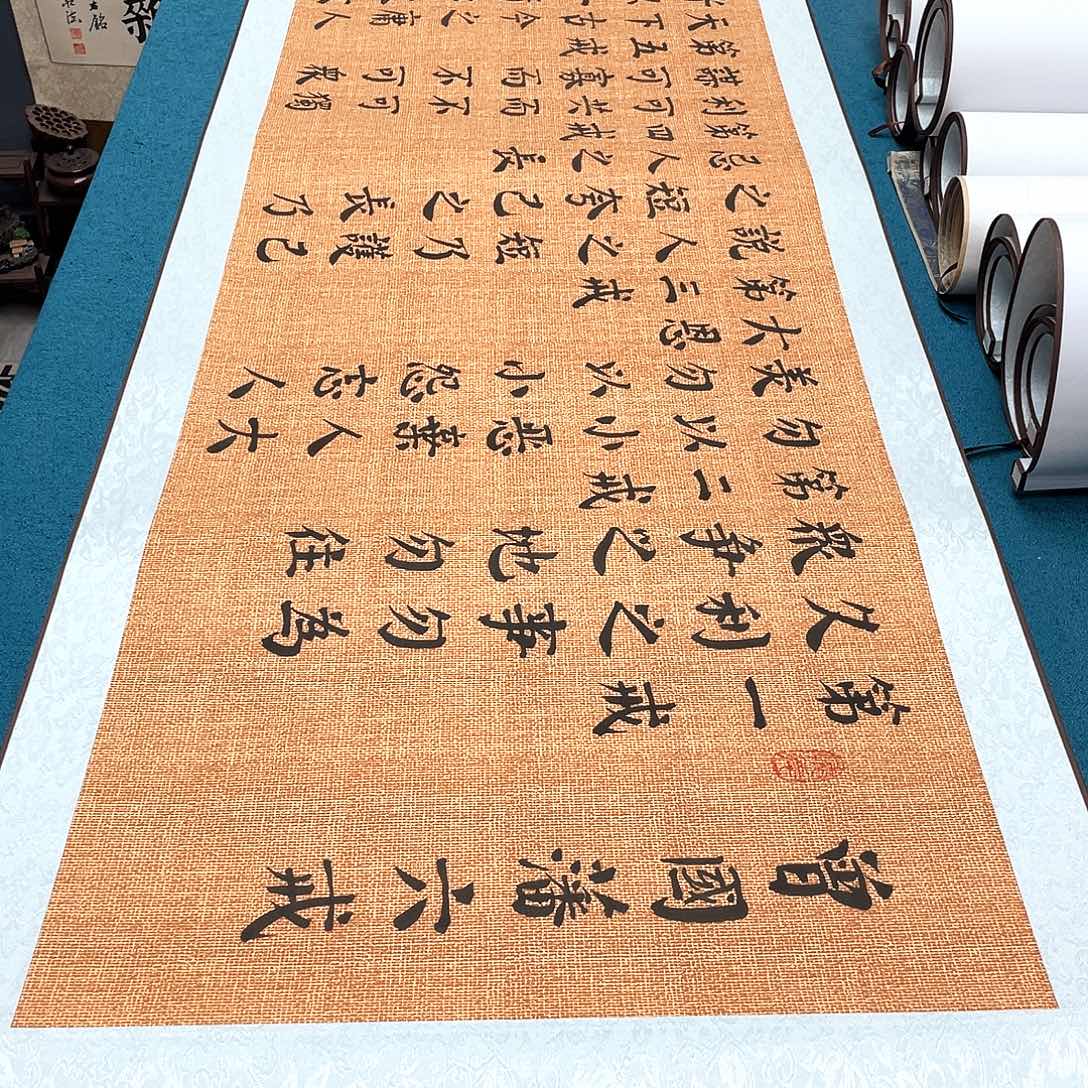 曾國藩六戒
第一戒
久利之事勿為
衆爭之地勿往
第二戒
勿以小惡棄人大
美勿以小怨忘人
大恩
第三戒
說人之短乃護己
之短夸己之長乃
忌人之長
第四戒
利可共而不可獨
謀可寡而不可衆
第五戒
天下古今之庸人